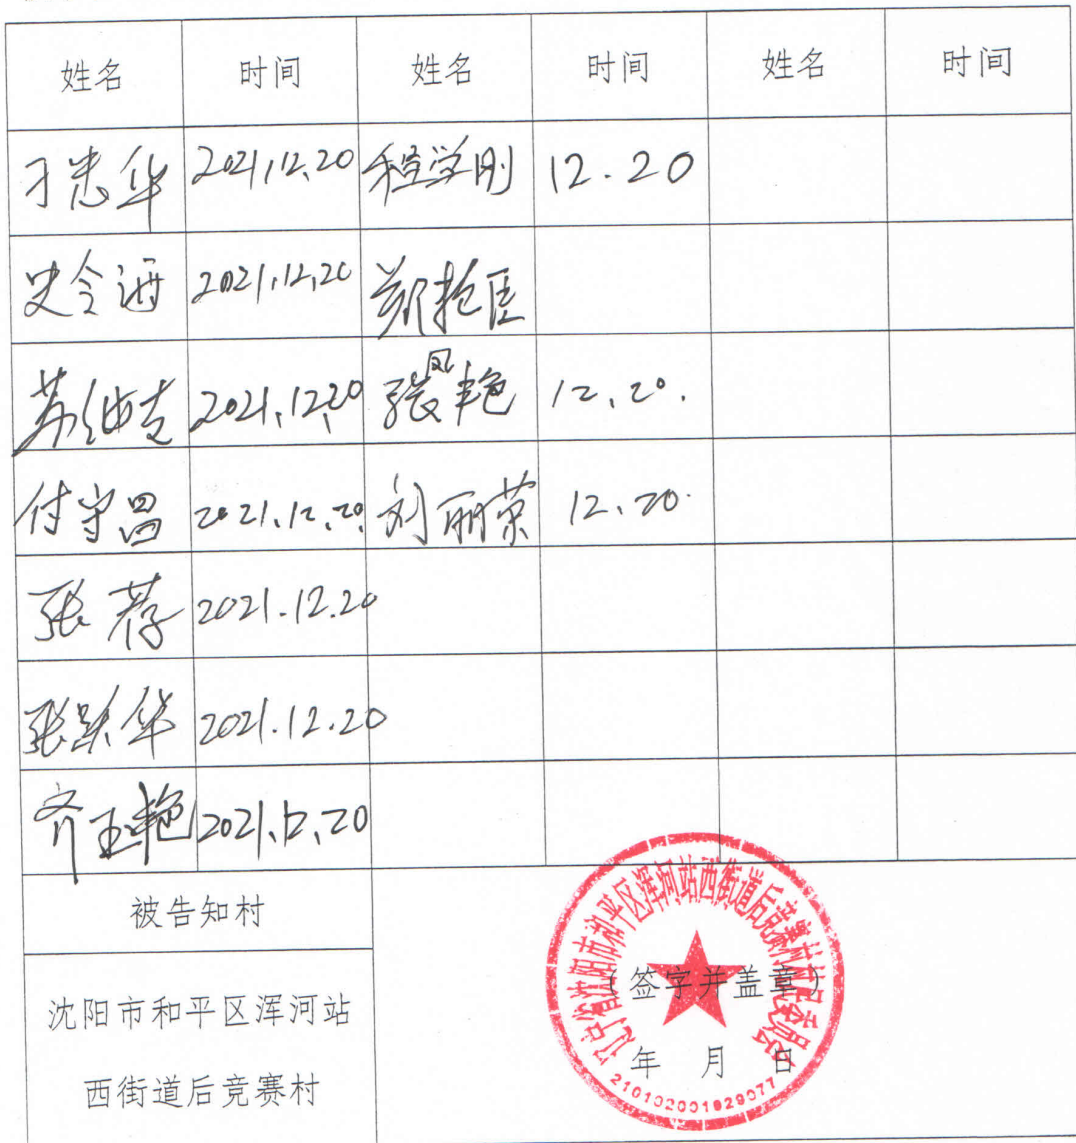 姓名 时间 姓名 时间 姓名 时间
刁忠华 2021,12,20 程学刚 12.20
史令 2021,12,20 郑艳
苏 2021,12,20 张凤艳 12,20.
付守昌 2021,12,20 刘丽荣 12,20.
张荐 2021.12.20
张跃华 2021.12.20
齐玉艳 2021,12,20
被告知村
沈阳市和平区浑河站
西街道后竞赛村
辽宁省沈阳市和平区浑河站西街道后竞赛村村民委员会
(签字并盖章)
年 月 日
210102001929077